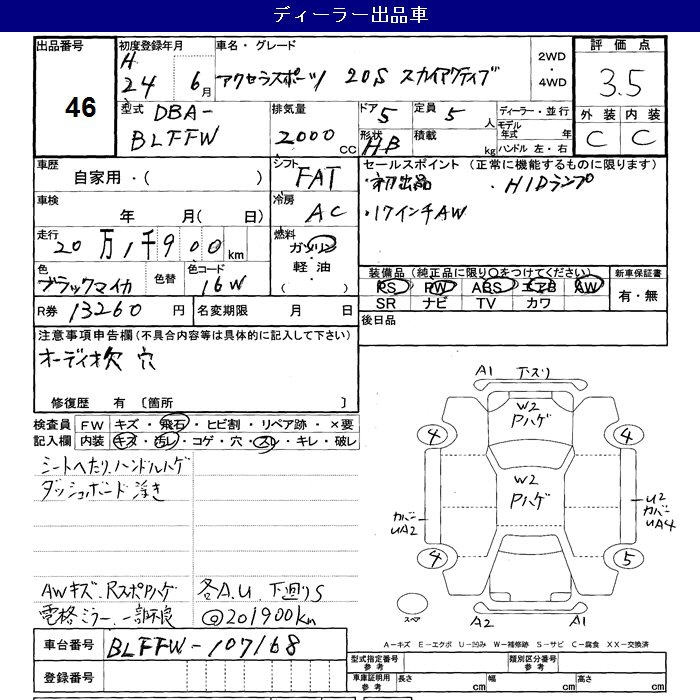 ディーラー出品車
出品番号 初度登録年月 車名・グレード 2WD ・ 4WD 評価点
46 H 24 6月 アクセラスポーツ 20S スカイアクティブ 3.5
型式 DBA- BLFFW 排気量 2000 CC ドア 5 定員 5 人 ディーラー・並行 外装 内装
形状 HB 積載 kg モデル年式 年 C C
ハンドル 左・右
車歴 シフト セールスポイント (正常に機能するものに限ります)
自家用・( ) FAT ・初出品 ・HIDランプ
車検 冷房 ・17インチAW
年 月( 日) AC
走行 燃料
20万1千900km ガソリン
軽油
( )
色 色替 色コード 装備品(純正品に限り○をつけてください) 新車保証書
ブラックマイカ 16W PS PW ABS エアB AW 有・無
R券 13260円 名変期限 月 日 SR ナビ TV カワ
注意事項申告欄(不具合内容等は具体的に記入して下さい) 後日品
オーディオ欠 穴
修復歴 有 〔箇所 〕
検査員 FW キズ・飛石・ヒビ割・リペア跡・×要
記入欄 内装 キズ・汚レ・コゲ・穴・スレ・キレ・破レ
シートヘたり、ハンドルハゲ
ダッシュボード浮き
AWキズ、Rスポハゲ 各A.U 下廻りS
電格ミラー、一部不良 @201900km
A1 下スリ
W2 Pハゲ
4 4
W2 Pハゲ
カバーUA2 U2 カバーUA4
4 5
スペア A2 A1
車台番号 BLFFW-107168
登録番号
A-キズ E-エクボ U-凹み W-補修跡 S-サビ C-腐食 XX-交換済
型式指定番号 参考 類別区分番号 参考
車庫証明用 参考 長さ cm 幅 cm 高さ cm